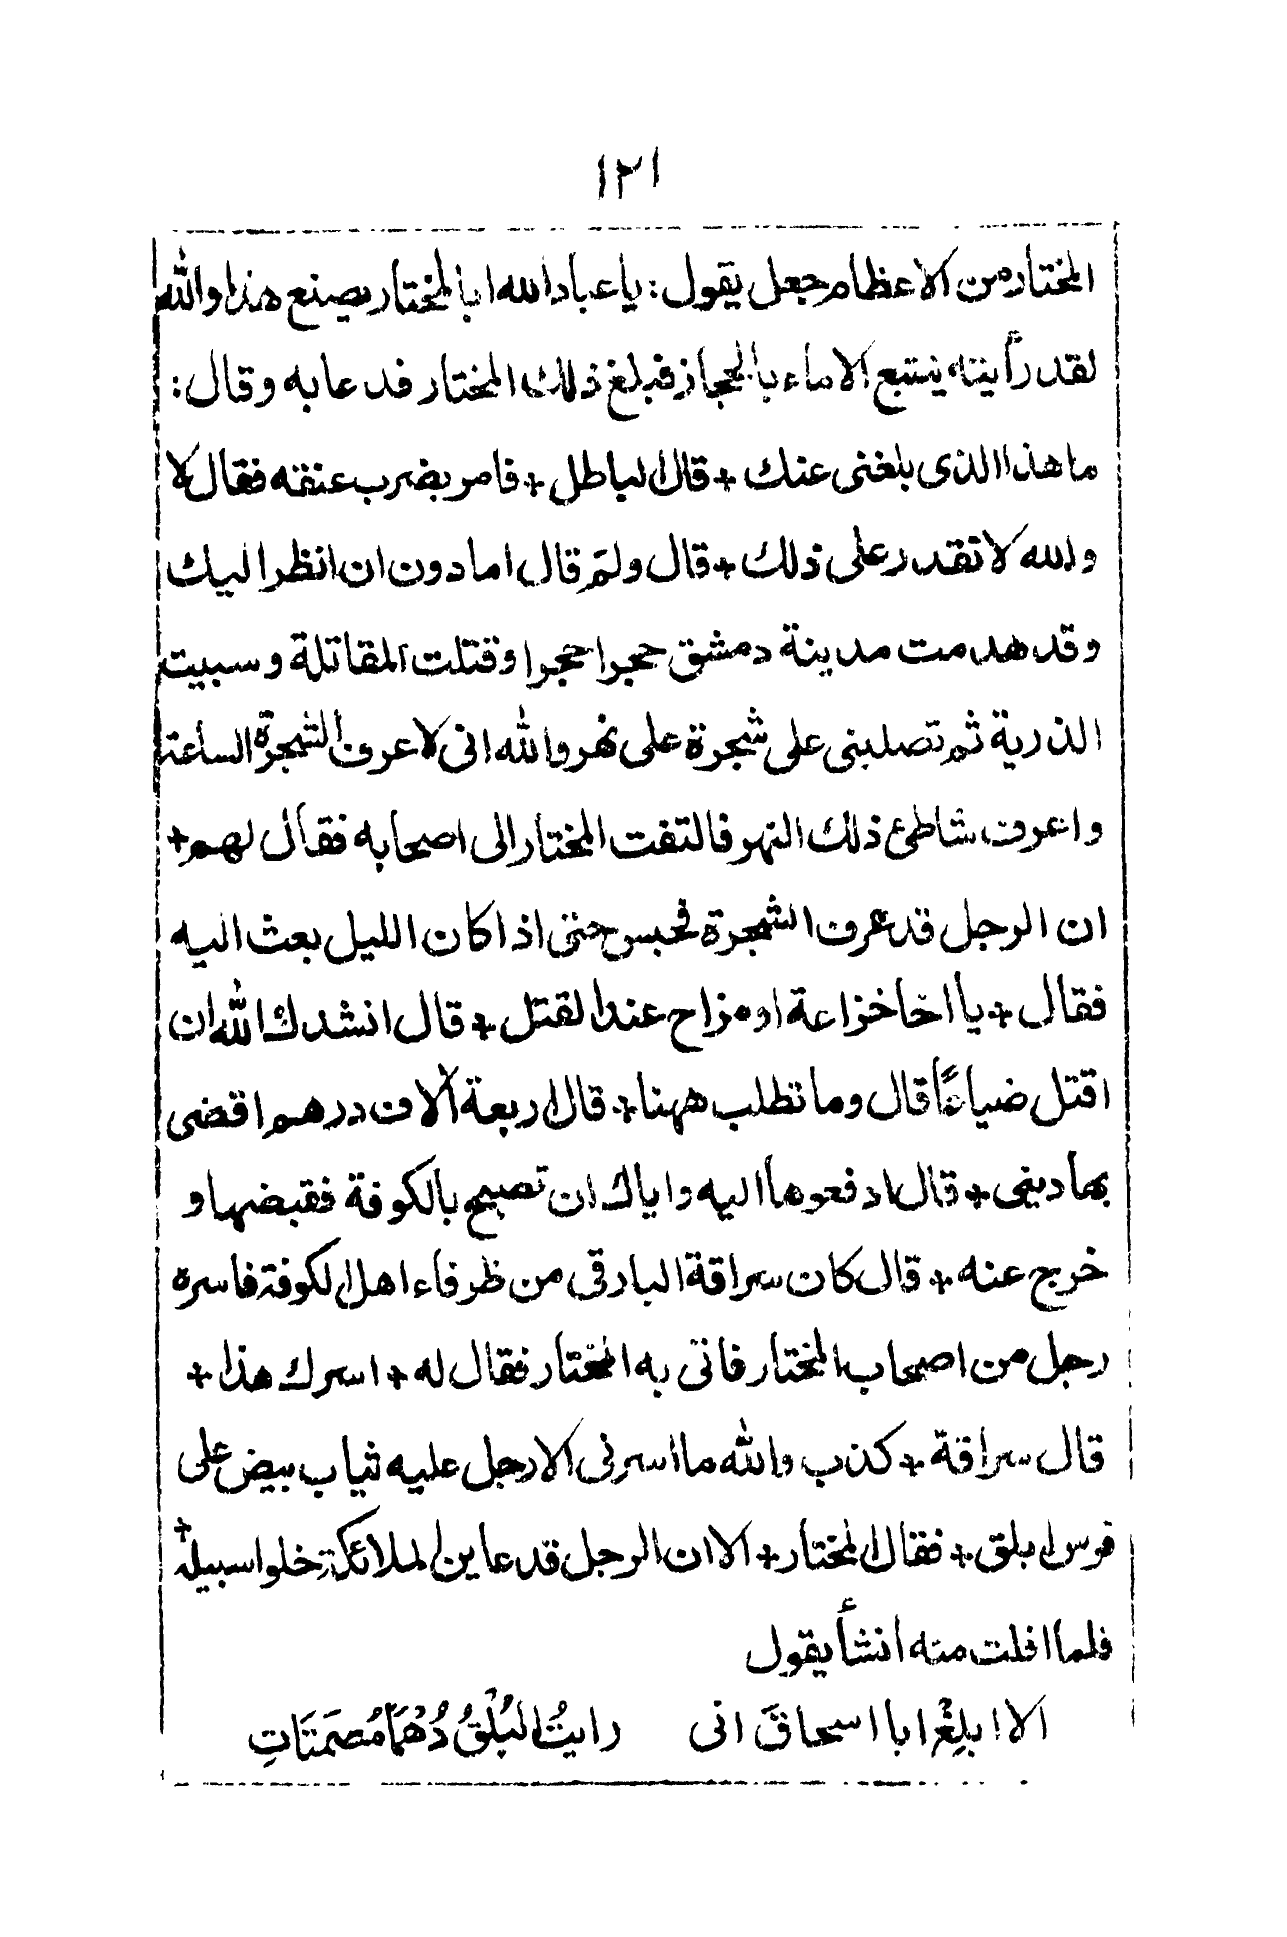 ١٢١
المختار من الاعظام جعل يقول: يا عباد الله ابا لمختار يصنع هذا والله
لقد رأيته يتتبع الاماء بالحجاز فبلغ ذلك المختار فدعا به وقال:
ما هذا الذى بلغنى عنك + قال الباطل + فامر بضرب عنقه فقال لا
والله لا تقدر على ذلك + قال ولم قال اما دون ان انظر اليك
وقد هدمت مدينة دمشق حجرا حجرا وقتلت المقاتلة وسبيت
الذرية ثم تصلبنى على شجرة على نهر والله انى لاعرف الشجرة الساعة
واعرف شاطئ ذلك النهر فالتفت المختار الى اصحابه فقال لهم +
ان الرجل قد عرف الشجرة فحبس حتى اذا كان الليل بعث اليه
فقال + يا اخا خزاعة او مزاح عند القتل + قال انشدك الله ان
اقتل ضياعًا قال وما تطلب ههنا + قال اربعة آلاف درهم اقضى
بها دينى + قال ادفعوها اليه واياك ان تصبح بالكوفة فقبضها و
خرج عنه + قال كان سراقة البارقى من ظرفاء اهل الكوفة فاسره
رجل من اصحاب المختار فاتى به المختار فقال له + اسرك هذا +
قال سراقة + كذب والله ما اسرنى الا رجل عليه ثياب بيض على
فرس ابلق + فقال المختار + الا ان الرجل قد عاين الملائكة خلوا سبيله +
فلما افلت منه انشأ يقول
الا ابلِغْ ابا اسحاقَ انى رايتُ البُلْقَ دُهْمًا مُصمَتَاتِ